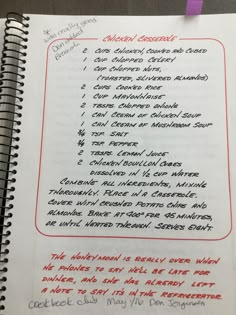 it's really yummy
Don
Chicken Casserole
2 cups chicken, cooked and cubed
1 cup chopped celery
1 cup chopped nuts,
(toasted, slivered almonds)
2 cups cooked rice
1 cup mayonnaise
2 tbsps chopped onion
1 can cream of chicken soup
1 can cream of mushroom soup
tsp salt
tsp pepper
2 tbsps lemon juice
2 chicken bouillon cubes
dissolved in ½ cup water
Combine all ingredients, mixing
thoroughly. Place in a casserole.
Cover with crushed potato chips and
almonds. Bake at 400° for 45 minutes,
or until heated through. Serves eight.
The honeymoon is really over when
he phones to say he'll be late for
dinner, and she has already left
a note to say it's in the refrigerator.
cookbook club May/ Don